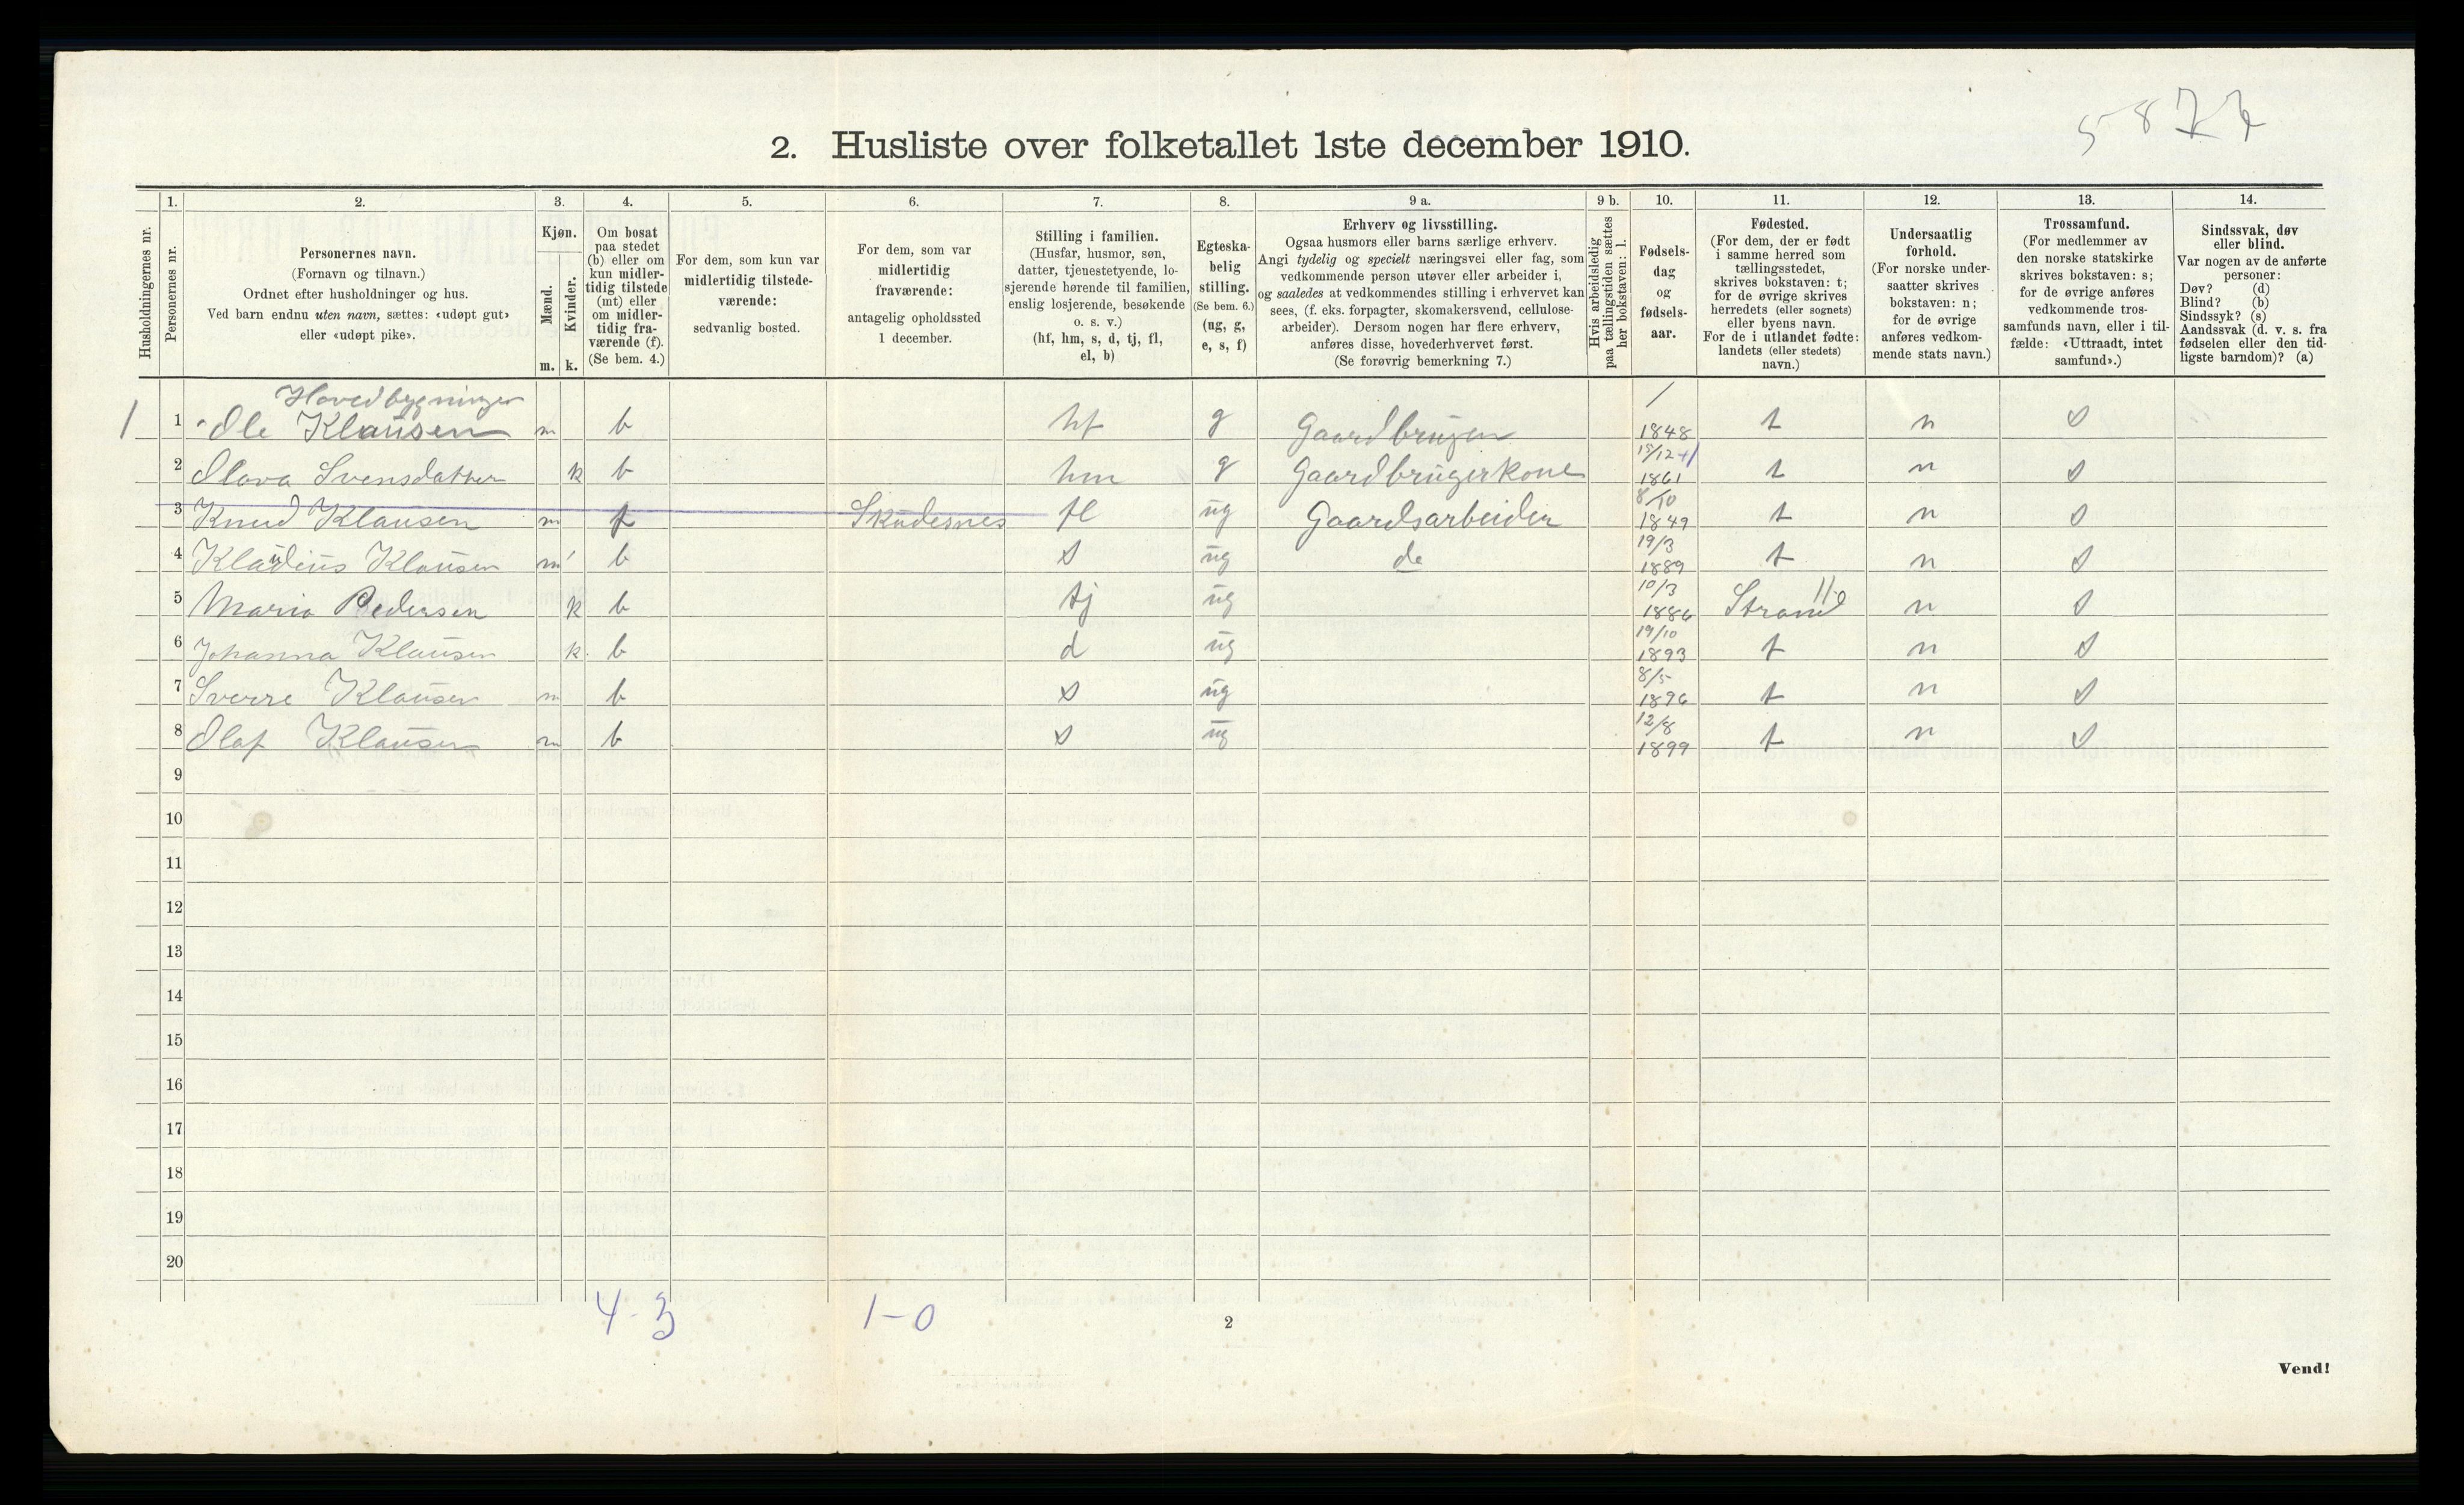 5877
2. Husliste over folketallet 1ste december 1910.
1. 2. 3. 4. 5. 6. 7. 8. 9 a. 9 b. 10. 11. 12. 13. 14.
Husholdningernes nr.
Personernes nr.
Personernes navn.
(Fornavn og tilnavn.)
Ordnet efter husholdninger og hus.
Ved barn endnu uten navn, sættes: «udøpt gut»
eller «udøpt pike».
Kjøn.
Mænd.
Kvinder.
m. k.
Om bosat
paa stedet
(b) eller om
kun midler-
tidig tilstede
(mt) eller
om midler-
tidig fra-
værende (f).
(Se bem. 4.)
For dem, som kun var
midlertidig tilstede-
værende:
sedvanlig bosted.
For dem, som var
midlertidig
fraværende:
antagelig opholdssted
1 december.
Stilling i familien.
(Husfar, husmor, søn,
datter, tjenestetyende, lo-
sjerende hørende til familien,
enslig losjerende, besøkende
o. s. v.)
(hf, hm, s, d, tj, fl,
el, b)
Egteska-
belig
stilling.
(Se bem. 6.)
(ug, g,
e, s, f)
Erhverv og livsstilling.
Ogsaa husmors eller barns særlige erhverv.
Angi tydelig og specielt næringsvei eller fag, som
vedkommende person utøver eller arbeider i,
og saaledes at vedkommendes stilling i erhvervet kan
sees, (f. eks. forpagter, skomakersvend, cellulose-
arbeider). Dersom nogen har flere erhverv,
anføres disse, hovederhvervet først.
(Se forøvrig bemerkning 7.)
Hvis arbeidsledig
paa tællingstiden sættes
her bokstaven: l.
Fødsels-
dag
og
fødsels-
aar.
Fødested.
(For dem, der er født
i samme herred som
tællingsstedet,
skrives bokstaven: t;
for de øvrige skrives
herredets (eller sognets)
eller byens navn.
For de i utlandet fødte:
landets (eller stedets)
navn.)
Undersaatlig
forhold.
(For norske under-
saatter skrives
bokstaven: n;
for de øvrige
anføres vedkom-
mende stats navn.)
Trossamfund.
(For medlemmer av
den norske statskirke
skrives bokstaven: s;
for de øvrige anføres
vedkommende tros-
samfunds navn, eller i til-
fælde: «Uttraadt, intet
samfund».)
Sindssvak, døv
eller blind.
Var nogen av de anførte
personer:
Døv? (d)
Blind? (b)
Sindssyk? (s)
Aandssvak (d. v. s. fra
fødselen eller den tid-
ligste barndom)? (a)
Hovedbygningen
1 1 Ole Klausen m b hf g Gaardbruger / 1848 t n s
2 Olava Svensdatter k b hm g Gaardbrugerkone 15/12 1861 t n s
3 Knud Klausen m f Skudesnes fl ug Gaardsarbeider 8/10 1849 t n s
4 Klaudius Klausen m b s ug do 19/3 1889 t n s
5 Maria Pedersen k b tj ug 10/3 1886 Strand n s
6 Johanna Klausen k b d ug 19/10 1893 t n s
7 Sverre Klausen m b s ug 8/5 1896 t n s
8 Olaf Klausen m b s ug 12/8 1899 t n s
9
10
11
12
13
14
15
16
17
18
19
20
4-3 1-0
2
Vend!